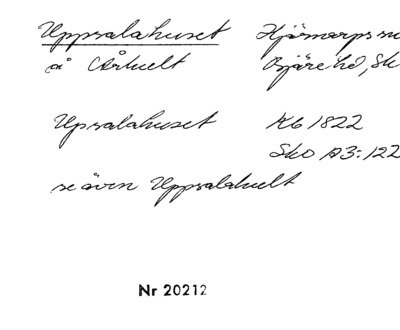 Uppsalahuset Hjärnarps sn
å Århult Bjäre hd, Sk
Upsalahuset Kb 1822
Sko A3:122
se även Uppsalahult
Nr 20212